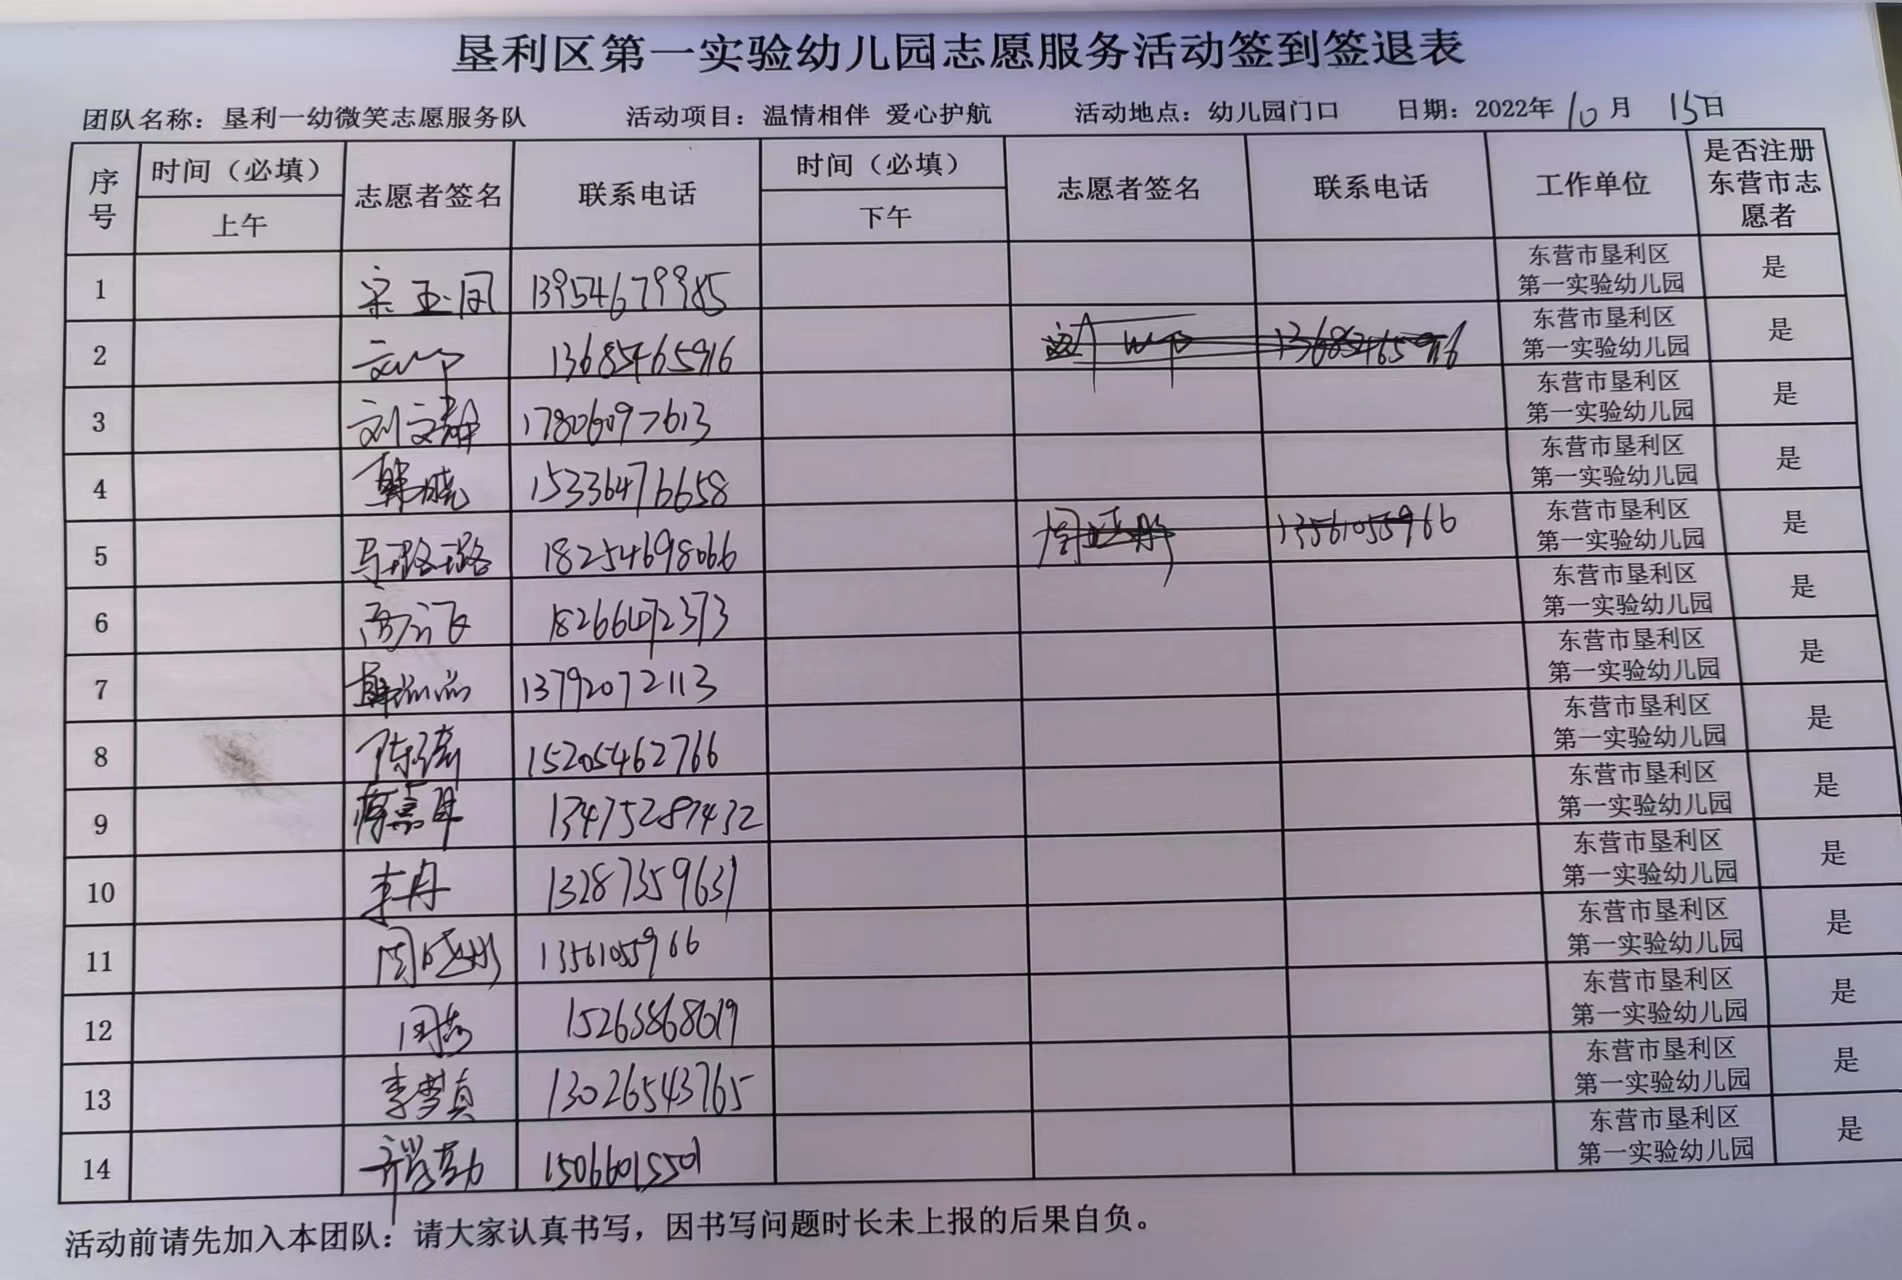 垦利区第一实验幼儿园志愿服务活动签到签退表
团队名称：垦利一幼微笑志愿服务队 活动项目：温情相伴 爱心护航 活动地点：幼儿园门口 日期：2022年 10 月 15日
序号 时间（必填） 上午 志愿者签名 联系电话 时间（必填） 下午 志愿者签名 联系电话 工作单位 是否注册东营市志愿者
1 宋玉凤 13954679985 东营市垦利区第一实验幼儿园 是
2 13685465916 13685465916 东营市垦利区第一实验幼儿园 是
3 刘文静 17806097613 东营市垦利区第一实验幼儿园 是
4 韩晓 15336476658 东营市垦利区第一实验幼儿园 是
5 马璐璐 18254698066 13561055966 东营市垦利区第一实验幼儿园 是
6 18266072373 东营市垦利区第一实验幼儿园 是
7 13792072113 东营市垦利区第一实验幼儿园 是
8 15205462766 东营市垦利区第一实验幼儿园 是
9 13475287432 东营市垦利区第一实验幼儿园 是
10 李丹 13287359631 东营市垦利区第一实验幼儿园 是
11 13561055966 东营市垦利区第一实验幼儿园 是
12 15263868619 东营市垦利区第一实验幼儿园 是
13 李梦真 13026543765 东营市垦利区第一实验幼儿园 是
14 15066015501 东营市垦利区第一实验幼儿园 是
活动前请先加入本团队：请大家认真书写，因书写问题时长未上报的后果自负。